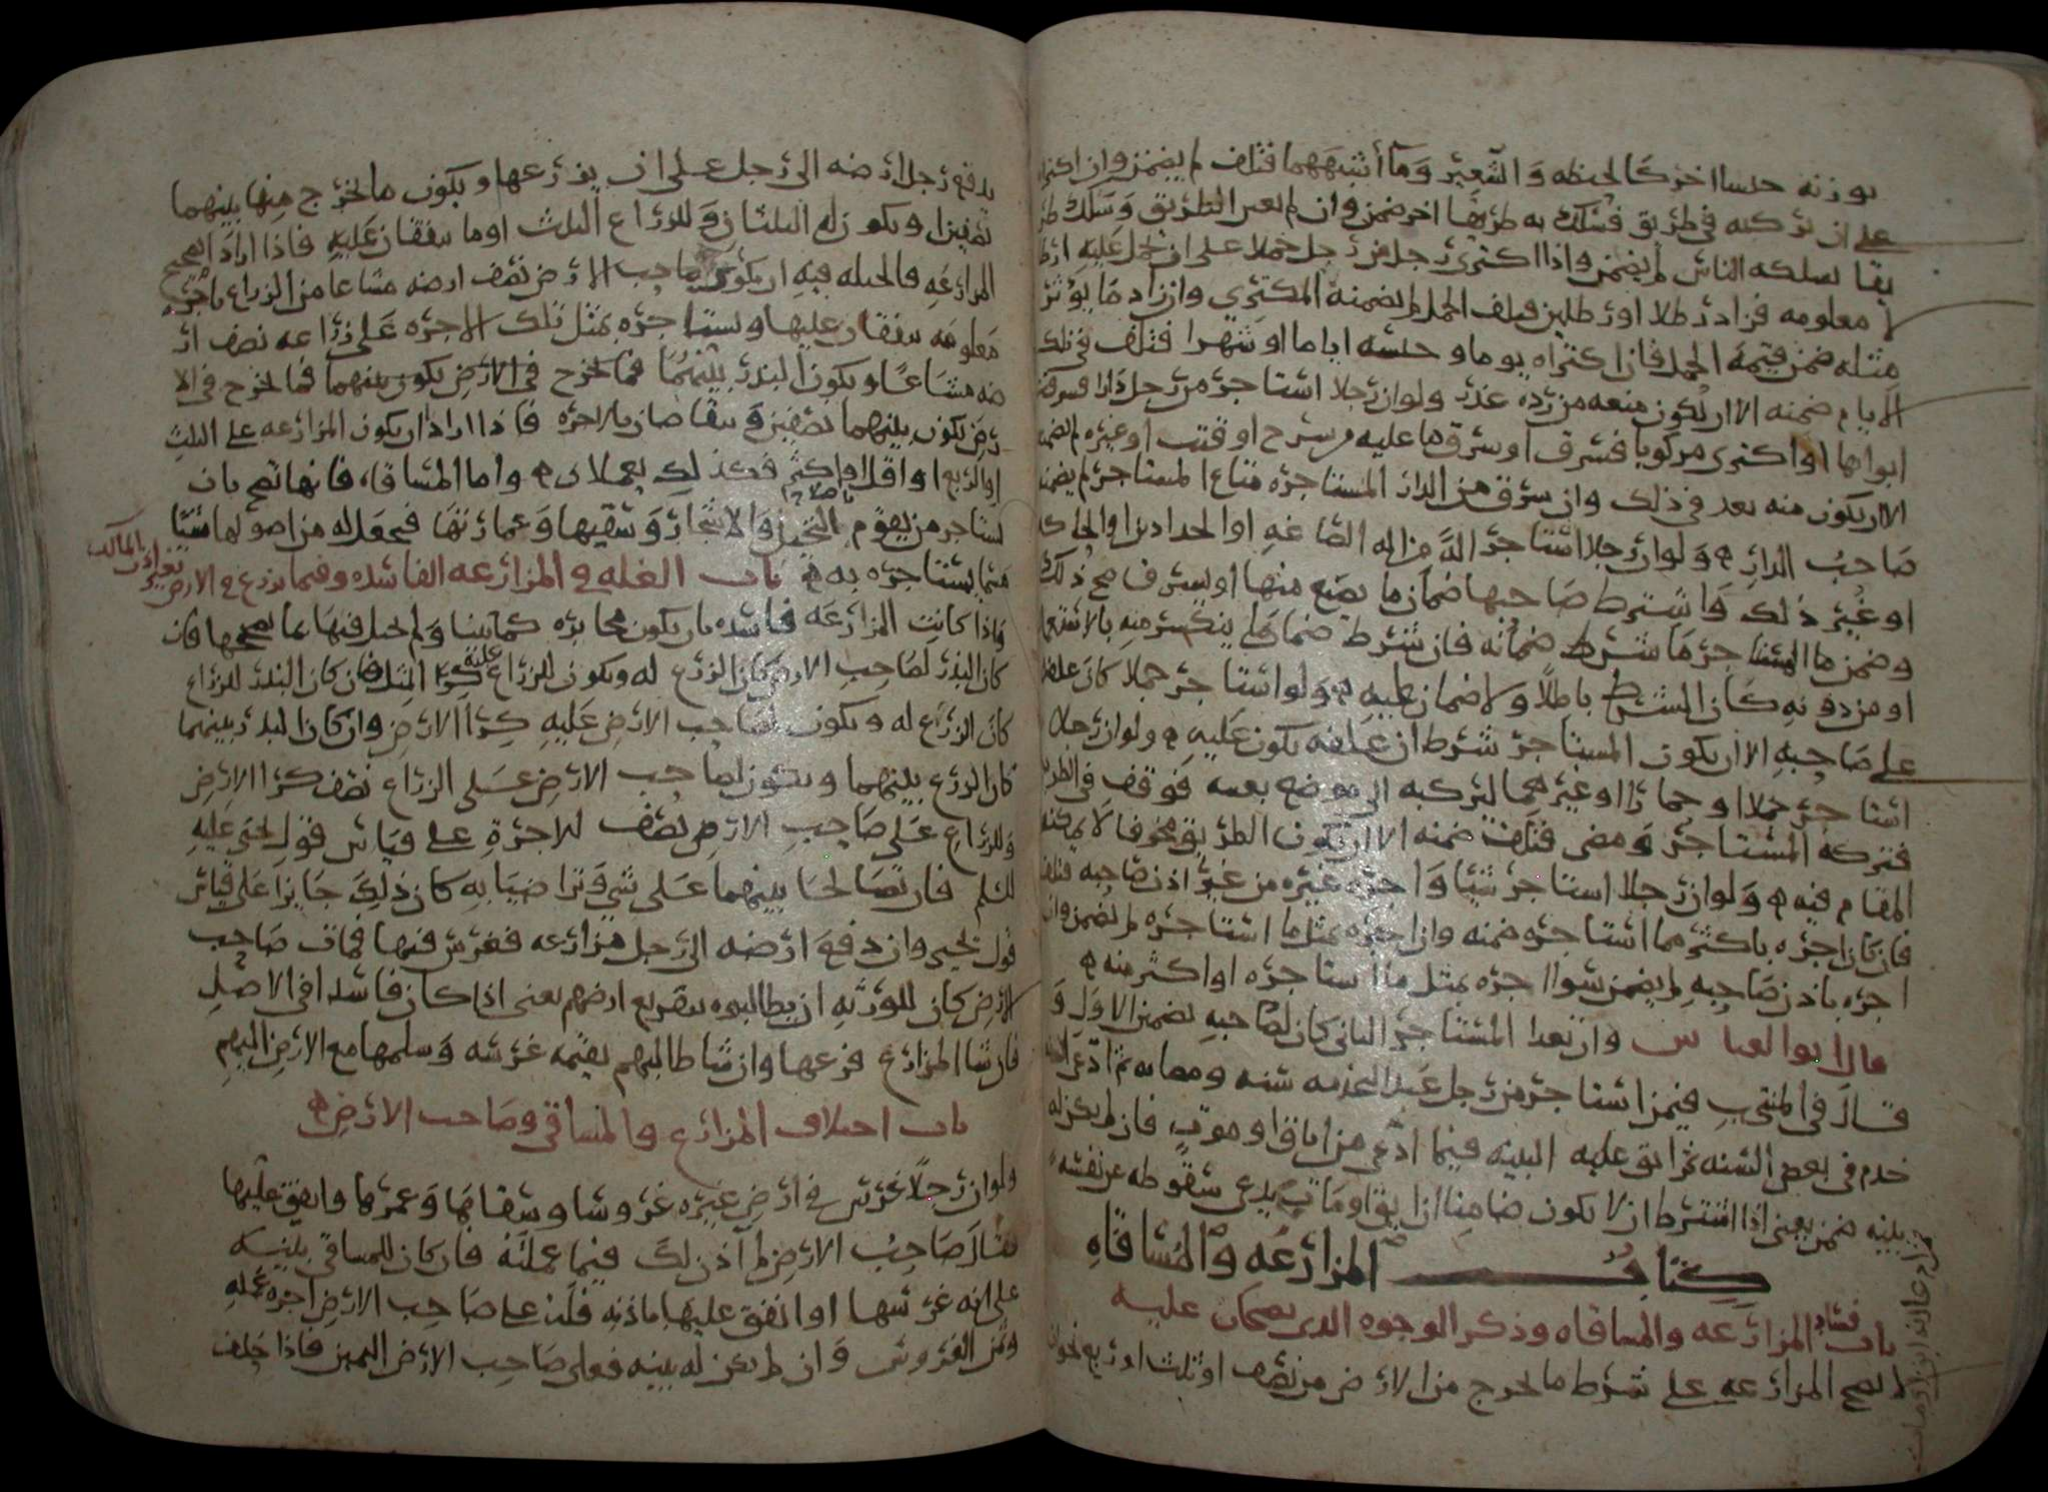 بوزنه جنسا اخر كالحنطه والشعير وما أشبههما فتلف لم يضمن وان اكترا
على ان يركبه في طريق فسلك به طريقا اخر ضمن وان لم يعير الطريق وسلك طر
يقا يسلكه الناس لم يضمن واذا اكترى رجل من رجل جملا على ان يحمل عليه ارطا
لا معلومه فزاد رطلا او رطلين فتلف الجمل لم يضمنه المكتري وان زاد ما يؤثر
مثله ضمن قيمة الجمل فان اكتراه يوما وحبسه اياما او شهرا فتلف في تلك
الايام ضمنه الا ان يكون منعه من رده عذر ولو ان رجلا استاجره من رجل دارا فسرقت
ابوابها او اكترى مركوبا فسرق او سرق ما عليه من سرح او قتب او غيره لم يضمنه
الا ان يكون منه تعد في ذلك وان سرق من الدار المستاجره متاع المستاجر لم يضمنه
صاحب الدار ولو ان رجلا استاجر الة من اله الصاغه او الحدادين او الحاكه
او غير ذلك واشترط صاحبها ضمان ما يضيع منها او يسرف صح ذلك
وضمن ما المستاجر ما شرط ضمانه فان شرط ضمان ما ينكسر منه بالاستعمال
او من دونه كان الشرط باطلا ولا ضمان عليه ولو استاجر جملا كان علفه
على صاحبه الا ان يكون المستاجر شرط ان علفه يكون عليه ولو ان رجلا
استاجر جملا او حمارا او غيرهما ليركبه الى موضع بعينه فوقف في الطريق
فتركه المستاجر ومضى فتلف ضمنه الا ان يكون الطريق مخوفا لا يمكنه
المقام فيه ولو ان رجلا استاجر شيئا واجره غيره من غير اذن صاحبه فتلف
فان كان اجره باكثر مما استاجره ضمنه وان اجره بمثل ما استاجره لم يضمن وان
اجره باذن صاحبه لم يضمن سوا اجره بمثل ما استاجره او اكثر منه
قال ابو العباس وان تعدا المستاجر الثاني كان لصاحبه تضمين الاول و
قال في المنتخب فيمن استاجر من رجل عبدا لخدمه سنه ثم ادعى انه
خدم في بعض السنه ثم ابق عليه البينه فيما ادعى من اباق او موت فان لم يكن له
بينه ضمن يعني اذا اشترط ان لا يكون ضامنا ان ابق او مات يدعي سقوطه عن نفسه
كتاب المزارعه والمساقاه
باب فساد المزارعه والمساقاه وذكر الوجوه الذي يصحان عليه
لا تصح المزارعه على شرط ما يخرج من الارض من نصف او ثلث او ربع نحو ان
يدفع رجل ارضه الى رجل على ان يزرعها ويكون ما يخرج منها بينهما
نصفين او يكون له الثلثان وللزراع الثلث او ما يتفقان عليه فاذا ارادا تصحيح
المزارعه فالحيله فيه ان يكرى صاحب الارض نصف ارضه مشاعا من الزراع باجره
معلومه يتفقان عليها ويستاجره بمثل تلك الاجره على زراعه نصف ار
ضه مشاعا ويكون البذر بينهما فما يخرج في الارض يكون بينهما فما يخرج في الا
رض يكون بينهما نصفين ويتقاصان بالاجره فاذا ارادا ان يكون المزارعه على الثلث
او الربع او اقل او اكثر فكذلك يعملان واما المساقاه فانها تصح بان
يستاجر من يقوم باصلاح النخيل والاشجار وسقيها وعمارتها فيجعل له من اصولها شيئا
فيما يستاجره به باب الغله في المزارعه الفاسده وفيما يزرع في الارض بغير اذن المالك
فاذا كانت المزارعه فاسده بان يكون مخابره كما بينا ولم يحتل فيها بما يصححها فان
كان البذر لصاحب الارض كان الزرع له ويكون للزراع عليه كرا المثل فان كان البذر للزراع
كان الزرع له ويكون لصاحب الارض عليه كرا الارض وان كان البذر بينهما
كان الزرع بينهما ويكون لصاحب الارض على الزراع نصف كرا الارض
وللزراع على صاحب الارض نصف الاجرة على قياس قول يحيى عليه
السلم فان تصالحا بينهما على شي وتراضيا به كان ذلك جايزا على قياس
قول يحيى وان دفع ارضه الى رجل مزارعه فغرس فيها فمات صاحب
الارض كان للورثه ان يطالبوه بتفريع ارضهم يعني اذا كان فاسدا في الاصل
فان شا المزارع فزعها وان شا طالبهم بقيمه غرسه وسلمها مع الارض اليهم
باب اختلاف المزارع والمساقي وصاحب الارض
ولو ان رجلا غرس في ارض غيره غروسا وسقاها وعمرها وانفق عليها
فقال صاحب الارض لم آذن لك فيما عملته فان كان للمساقي بينه
على انه غرسها او انفق عليها باذنه فله على صاحب الارض اجره عمله
وثمن الغروس وان لم يكن له بينه فعلى صاحب الارض اليمين فاذا حلف